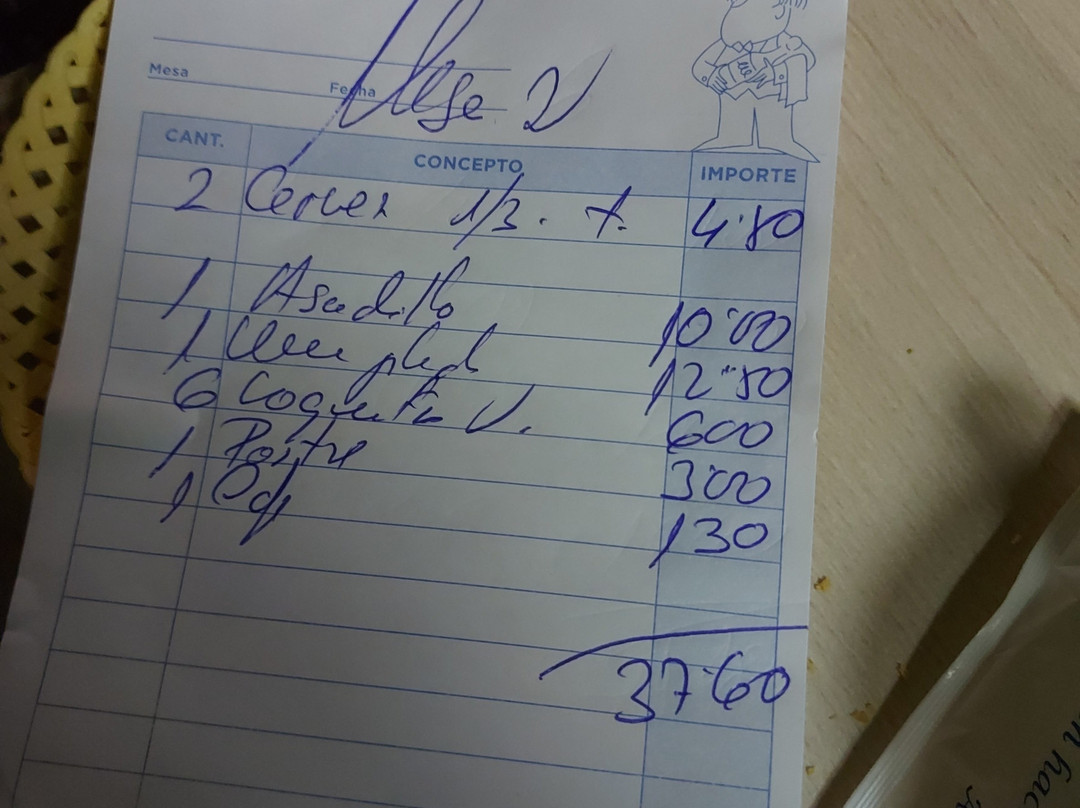 Mesa
Fecha
Mesa 2
CANT. CONCEPTO IMPORTE
2 Cervez 1/3. t. 4'80
1 Asadillo 10'00
1 12'50
6 Coqueta V. 600
1 Postre 3'00
1 Caf 130
37'60